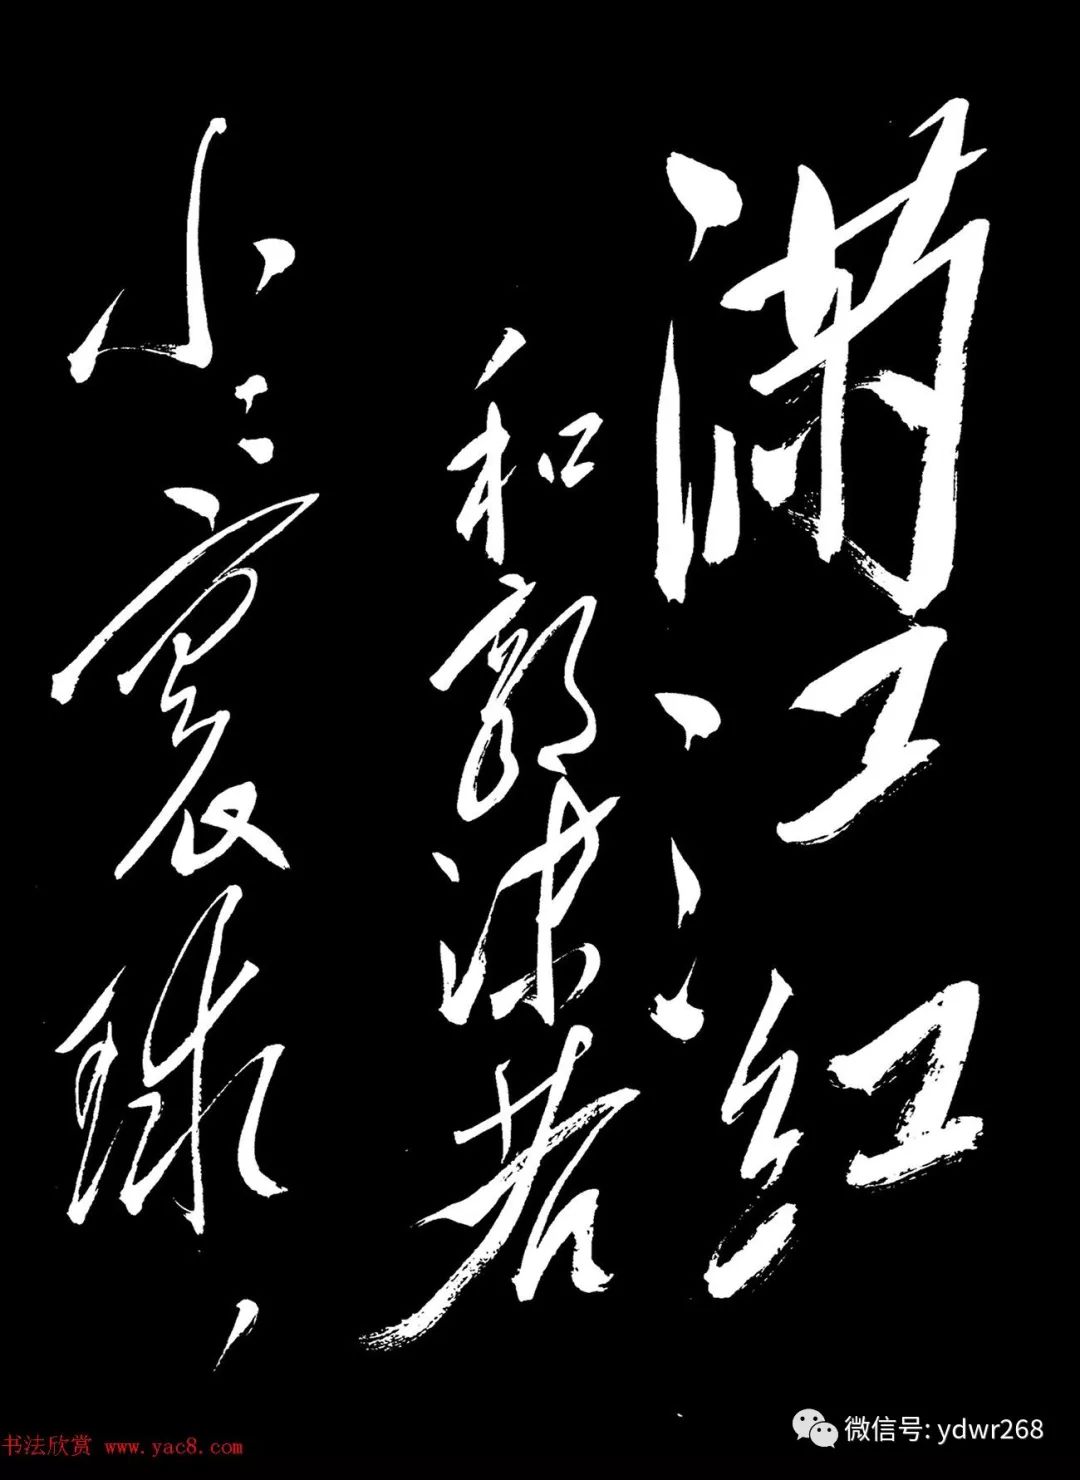 满江红
和郭沫若
小小寰球，
微信号: ydwr268
书法欣赏 www.yac8.com